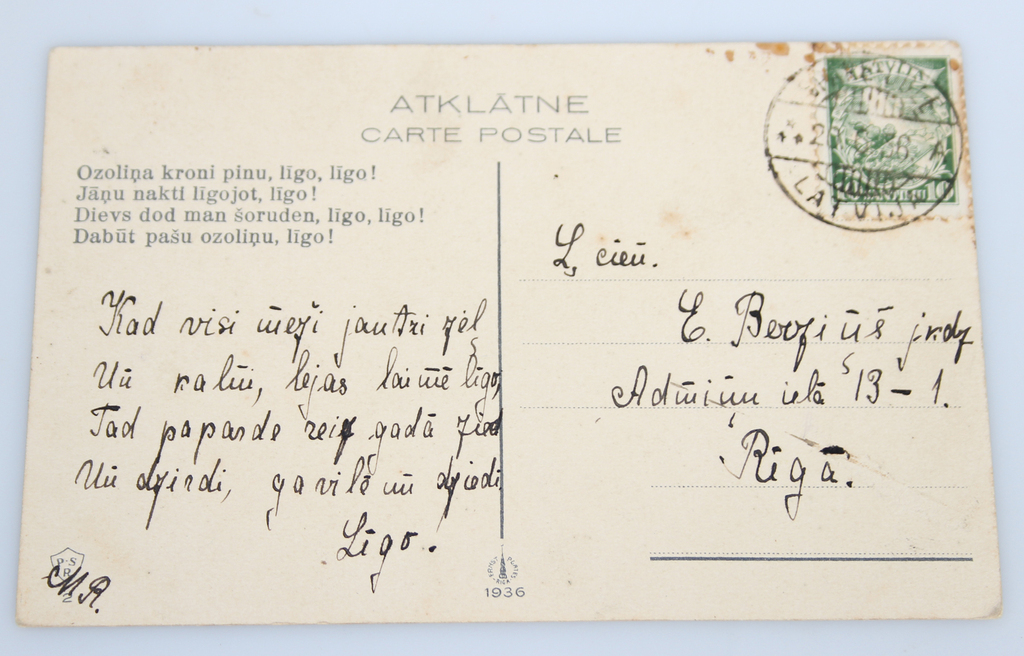 ATKLĀTNE
CARTE POSTALE
Ozoliņa kroni pinu, līgo, līgo!
Jāņu nakti līgojot, līgo!
Dievs dod man šoruden, līgo, līgo!
Dabūt pašu ozoliņu, līgo!
Kad visi meži jautri zel
Un kalni, lejas laimē līgo,
Tad paparde reiz gadā zied
Un dzirdi, gavilē un dziedi
Līgo.
M.R.
P-S
R
2
1936
LATVIJA
LATVIJA
L. cien.
E. Berziņš jkdz
ielā 13-1.
Rīgā.